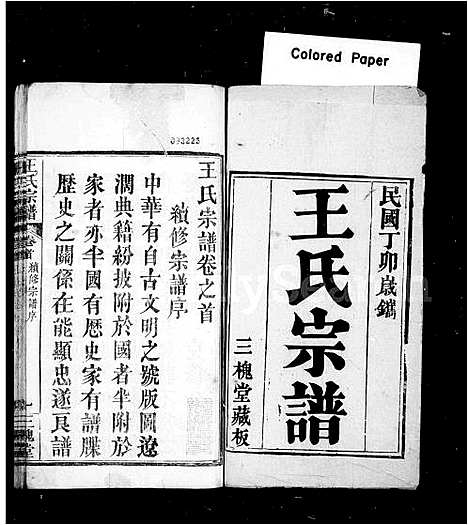 Colored Paper
民國丁卯歲鐫
王氏宗譜
三槐堂藏板
893223
王氏宗譜卷之首
續修宗譜序
中華有自古文明之號版圖遼
濶典籍紛披附於國者半附於
家者亦半國有歷史家有譜牒
歷史之關係在能顯忠遂良譜
王氏宗譜
卷首
續修宗譜序
一
三槐堂